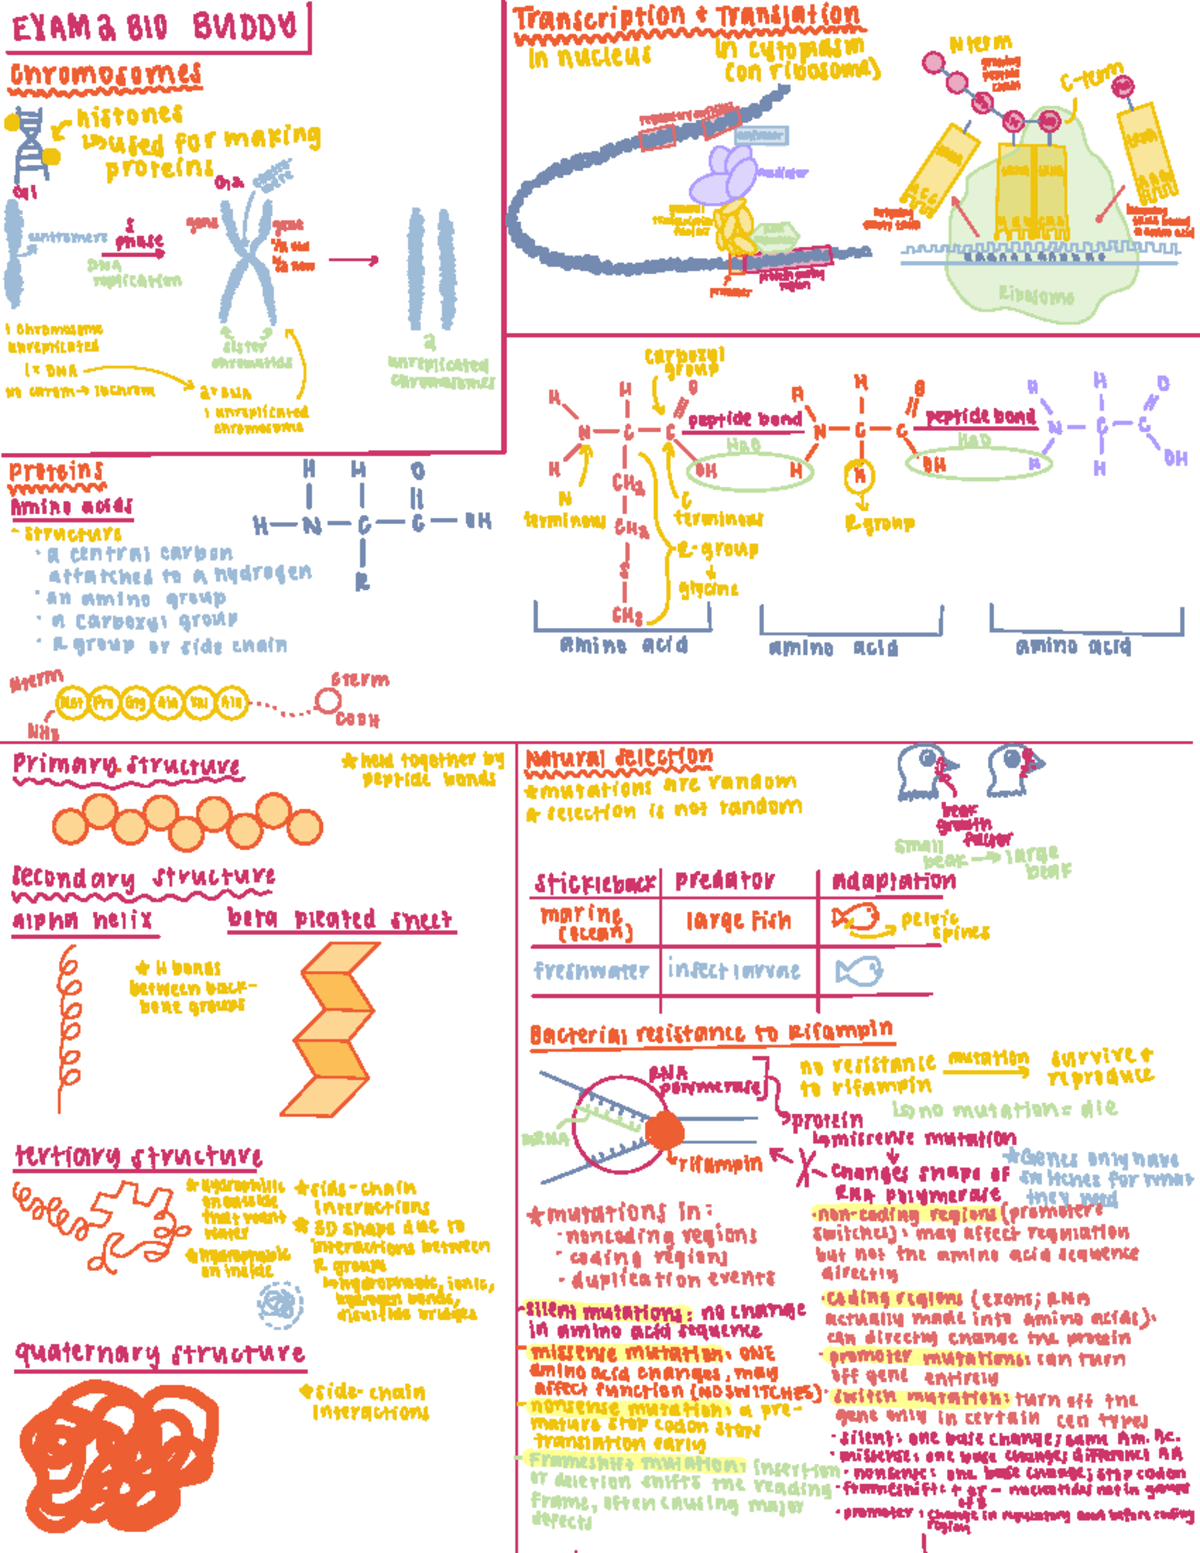 EXAM 2 BIO BUDDY
Chromosomes
histones
used for making
proteins
G1
centromere
S
phase
DNA
replication
G2
gene
gene
1/2 old
1/2 new
sister
chromatids
2
unreplicated
chromosomes
1 chromosome
unreplicated
1x DNA
2x DNA
1 unreplicated
chromosome
Transcription + Translation
in nucleus
in cytoplasm
(on ribosome)
mediator
promoter
protein coding
region
N term
growing
peptide
chain
C-term
Ribosome
Proteins
Amino acids
- structure
· a central carbon
attatched to a hydrogen
· an amino group
· a carboxyl group
· R group or side chain
H
H
O
H
N
C
C
OH
R
Nterm
NH3
Met
Pro
Ala
Val
Ala
Cterm
COOH
carboxyl
group
peptide bond
H2O
peptide bond
H2O
N
terminous
C
terminous
R-group
glycine
R group
CH2
CH2
S
CH3
amino acid
amino acid
amino acid
Primary structure
★ held together by
peptide bonds
Secondary structure
alpha helix
beta pleated sheet
★ H bonds
between back-
bone groups
tertiary structure
★ hydrophilic
on outside
that want
water
★ hydrophobic
on inside
★ side-chain
interactions
★ 3D shape due to
interactions between
R groups
hydrophobic, ionic,
hydrogen bonds,
disulfide bridges
quaternary structure
★ side-chain
interactions
Natural selection
★ mutations are random
★ selection is not random
beak
growth
factor
small
beak → large
beak
stickleback
predator
adaptation
marine
(ocean)
large fish
pelvic
spines
freshwater
insect larvae
Bacterial resistance to Rifampin
RNA
polymerase
mRNA
rifampin
no resistance
to rifampin
mutation
survive +
reproduce
no mutation = die
protein
missense mutation
changes shape of
RNA polymerase
★ Genes only have
switches for what
they need
★ mutations in:
· noncoding regions
· coding regions
· duplication events
- silent mutations: no change
in amino acid sequence
- missense mutation: ONE
amino acid changes, may
affect function (NO SWITCHES)
- nonsense mutation a pre-
mature stop codon stops
translation early
- Frameshift mutation: insertion
or deletion shifts the reading
frame, often causing major
defects
· non-coding regions (promoters
switches): may affect regulation
but not the amino acid sequence
directly
· coding regions (exons; RNA
actually made into amino acids):
can directly change the protein
· promoter mutations: can turn
off gene entirely
· switch mutation: turn off the
gene only in certain cell types
· silent: one base change; same Am. Ac.
· missense: one base change; different AA
· nonsense: one base change; stop codon
· frameshift: + or - nucleotides not in groups
of 3
· promoter: change in regulatory area before coding
region